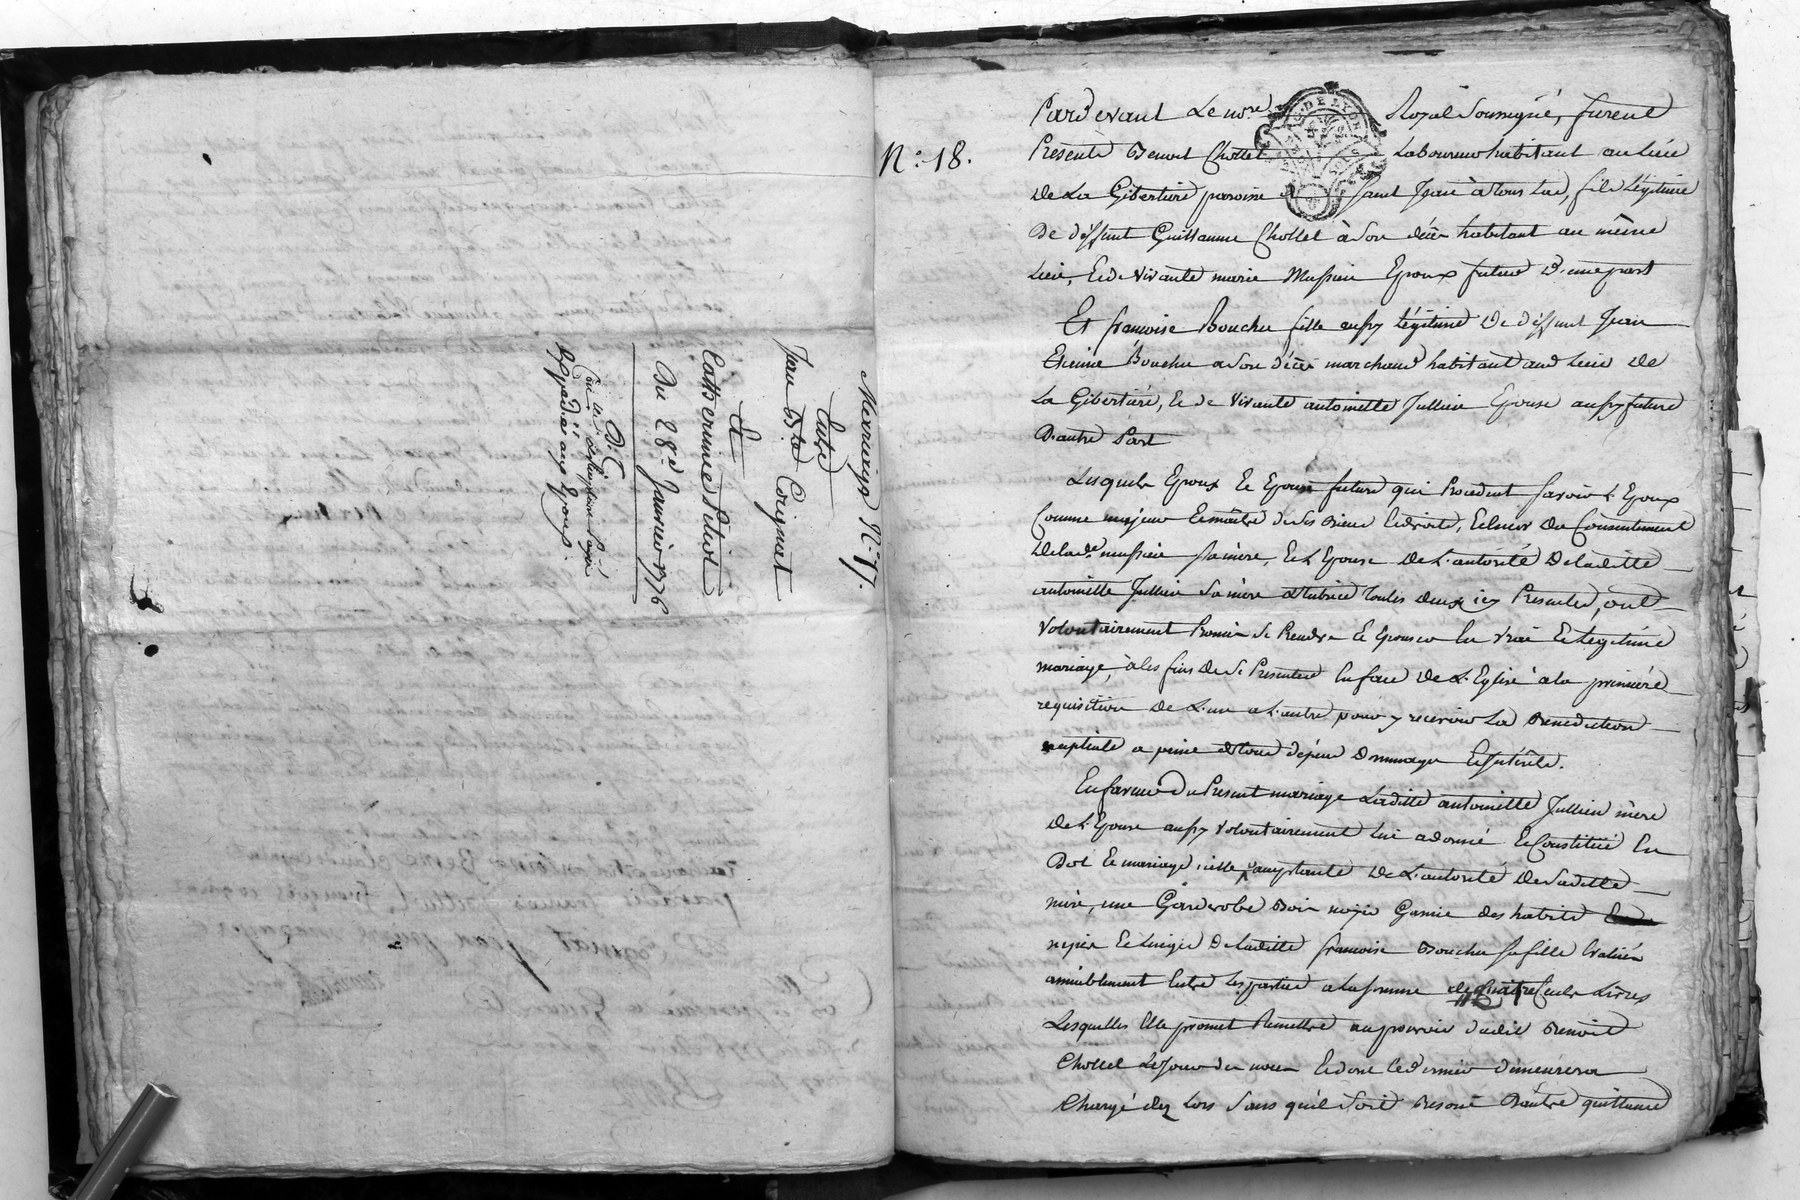 Mariage N.° 17.
Entre
Jean Bte. Coignat
Et
Catherine Petiot
Du 28e. Janvier 1776
N.° 18.
Pardevant Le nore. Royal Soussigné, furent
Presents Benoit Chollet Laboureur habitant au Lieu
De La Gibertiere paroisse Saint Jean à tous las, fils Légitime
De déffunt Guillaume Chollet à Son décès habitant au même
Lieu, Et de vivante marie Mussieu Epoux futur D'une part
Et francoise Bouchu fille aussy légitime De déffunt Jean
Etienne Bouchu a Son décès marchand habitant aud. Lieu de
La Gibertière, Et de Vivante antoinette Jullien Epouse aussy future
D'autre Part
Lesquels Epoux Et Epouse futurs qui Procedent savoir L'Epoux
Comme majeur Et maître de Ses Biens Et droits, Et encor du Consentement
De lade. mussieu Sa mère, Et L'Epouse De L'autorité De laditte
antoinette Jullien Sa mère Toutes deux icy Presentes, ont
Volontairement Promis Se Prendre Et Epouser En Vrai Et Legitime
mariage, à les fins De Se Presenter En face De L'Eglise à la première
requisition De L'un a L'autre pour y recevoir La Benediction
nuptiale a peine de tous dépens Dommages Et Intérêts.
En faveur du Present mariage Laditte antoinette Jullien mère
De L'Epouse aussy Volontairement lui a donné Et Constitué En
Dot Et mariage, icelle acceptante De L'autorité De Saditte
mère, une Garderobe Bois noyer Garnie des habits
nipes Et Linges De laditte francoise Bouchu Sa fille Evalués
amiablement Entre Les parties a la Somme de Quatre Cents Livres
Lesquelles Elle promet Remettre au pouvoir dudit Benoit
Chollet Le jour des noces Et dont Ce dernier demeurera
Chargé dez Lors Sans qu'il Soit Besoin D'autre quittance